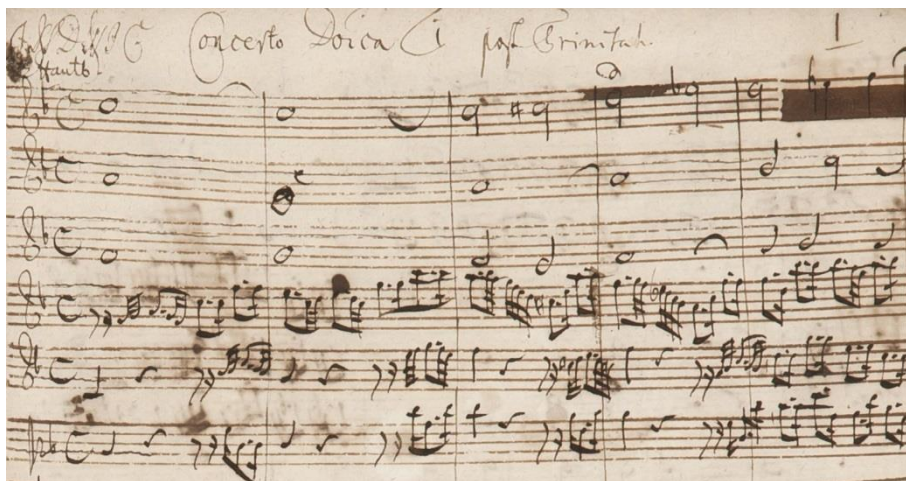 J N D N J C Concerto Doica 1 post Trinitat. 1
Hautb: